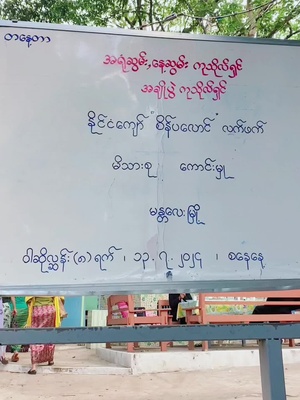 တနေ့တာ
အရုံဆွမ်း,နေ့ဆွမ်း ကုသိုလ်ရှင်
အချိုပွဲ ကုသိုလ်ရှင်
နိုင်ငံကျော် "စိန်ပလောင်" လက်ဖက်
မိသားစု ကောင်းမှု
မန္တလေးမြို့
ဝါဆိုလဆန်း (၈) ရက် ၊ ၁၃ . ၇ . ၂၀၂၄ ၊ စနေနေ့